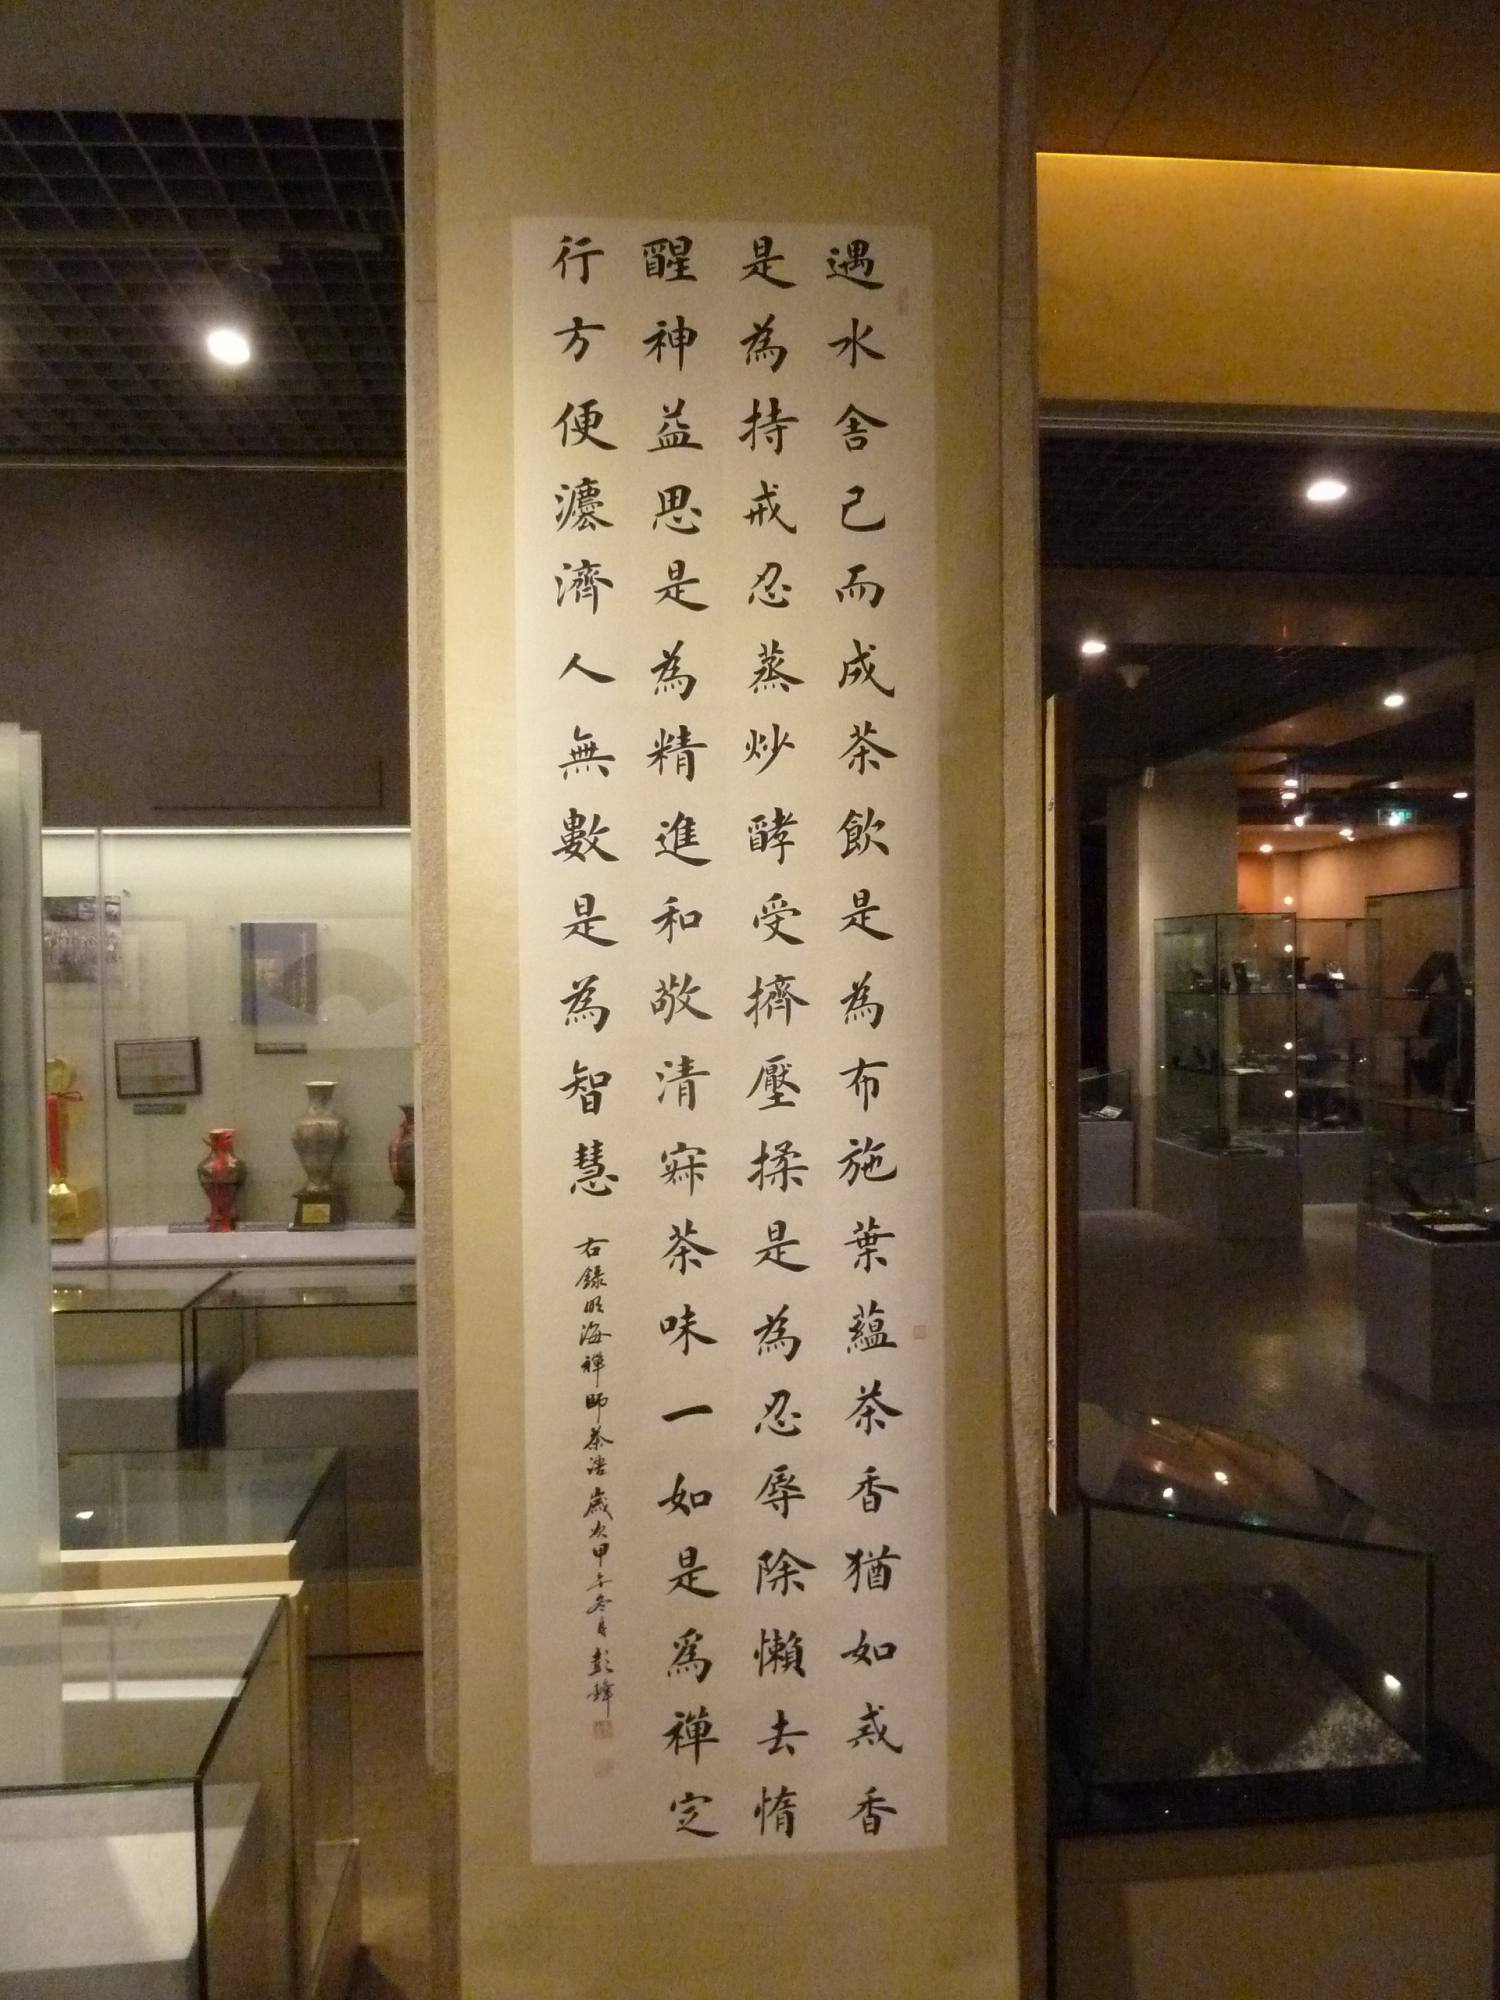 遇水舍己而成茶飲是為布施葉蘊茶香猶如戒香
是為持戒忍蒸炒酵受擠壓揉是為忍辱除懶去惰
醒神益思是為精進和敬清寂茶味一如是為禪定
行方便灋濟人無數是為智慧
右錄明海禪師茶語歲次甲午冬月彭鋒